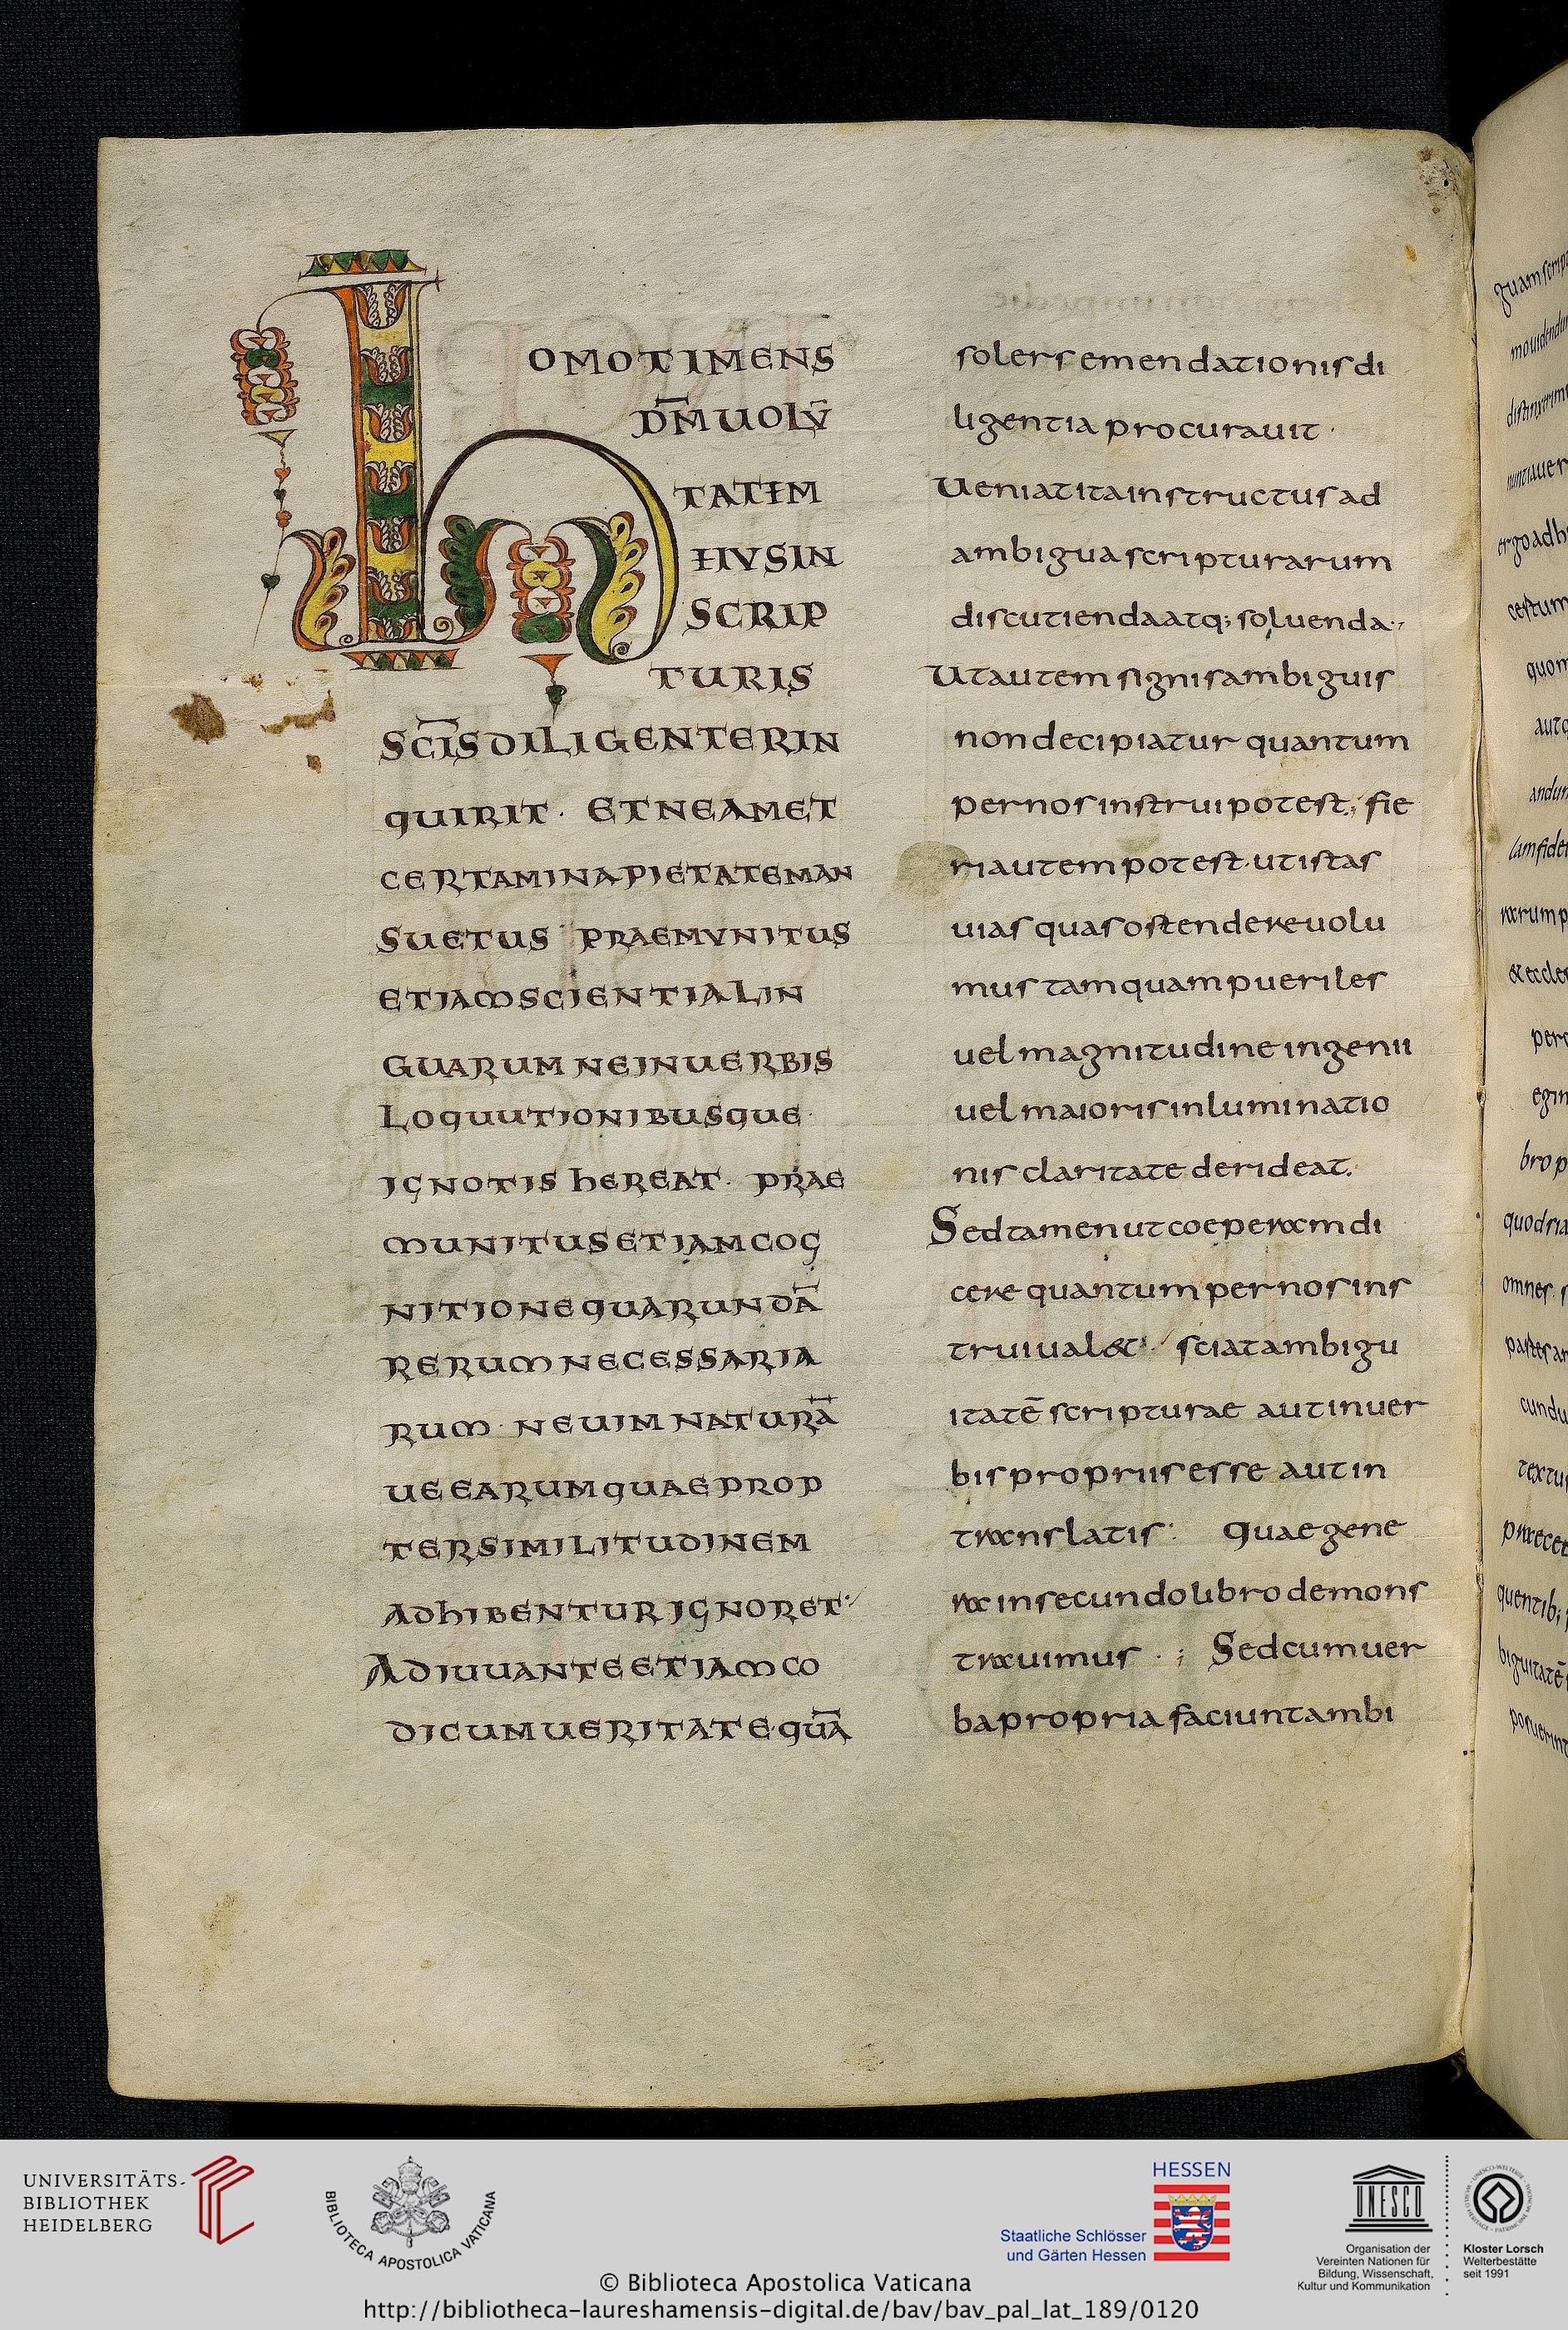 HOMOTIMENS
DM̄UOLŪ
TATEM
EIUSIN
SCRIP
TURIS
SC̄ISDILIGENTERIN
QUIRIT · ETNEAMET
CERTAMINAPIETATEMAN
SUETUS PRAEMUNITUS
ETIAMSCIENTIALIN
GUARUMNEINUERBIS
LOQUUTIONIBUSQUE·
IGNOTIS hEREAT · PRAE
MUNITUSETIAMCOG
NITIONEQUARUNDĀ
RERUMNECESSARIA
RUM · NEUIMNATURĀ
UEEARUMQUAEPROP
TERSIMILITUDINEM
ADhIBENTURIGNORET·/
ADIUUANTEETIAMCO
DICUMUERITATE·QUĀ
solersemendationisdi
ligentiaprocurauit ·
Ueniatitainstructusad
ambiguascripturarum
discutiendaatq; soluenda·,
Utautemsignisambiguis
nondecipiatur quantum
pernosinstruipotest·, fie
riautempotest·utistas
uiasquasostenderevolu
mustamquampueriles
uelmagnitudineingenii
uelmaiorisinluminatio
nis claritate derideat.
Sedtamenutcoeperamdi
cerequantumpernosins
truiualet·, sciatambigu
itatē scripturae autinuer
bispropriisesse autin
translatis · Quaegene
rainsecundolibrodemons
trauimus · ; Sedcumuer
bapropriafaciuntambi
UNIVERSITÄTS-
BIBLIOTHEK
HEIDELBERG
BIBLIOTECA APOSTOLICA VATICANA
HESSEN
Staatliche Schlösser
und Gärten Hessen
UNESCO
Organisation der
Vereinten Nationen für
Bildung, Wissenschaft,
Kultur und Kommunikation
Kloster Lorsch
Welterbestätte
seit 1991
© Biblioteca Apostolica Vaticana
http://bibliotheca-laureshamensis-digital.de/bav/bav_pal_lat_189/0120